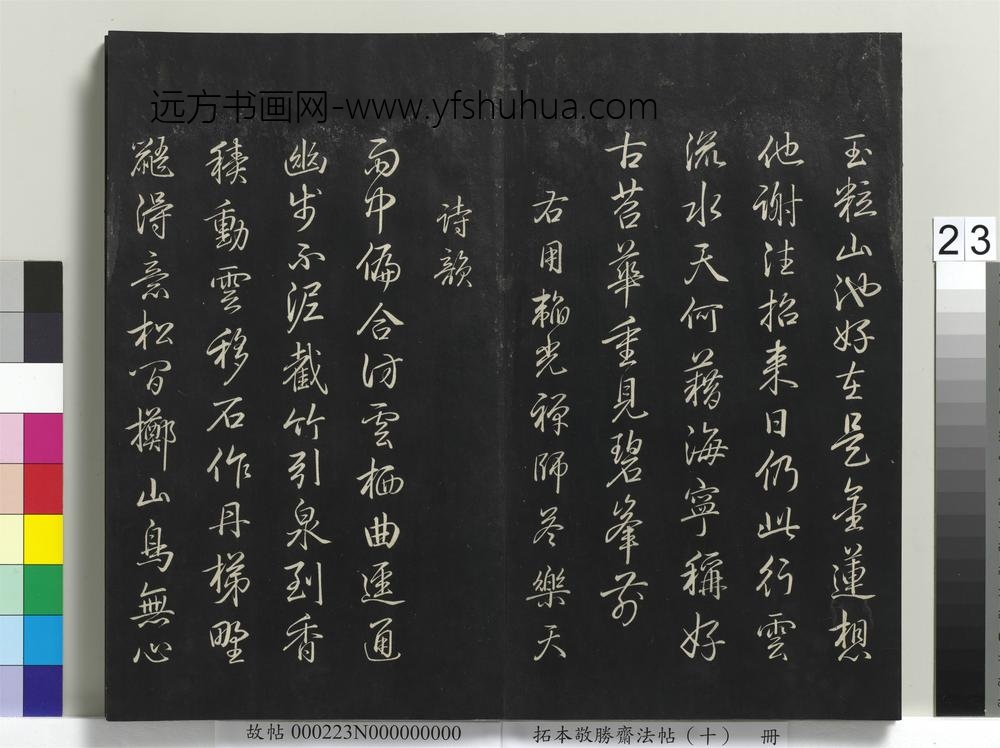 远方书画网-www.yfshuhua.com
玉粒山池好在是金蓮想
他謝洼招来日仍此行雲
流水天何藉海寧稱好
古苔華重見碧峯前
右用韜光禪師答樂天
詩韻
雨中偏合訪雲栖曲逕通
幽步不泥截竹引泉到香
積動雲移石作丹梯野
得意松間擲山鳥無心
23
故帖 000223N000000000
拓本敬勝齋法帖（十） 冊